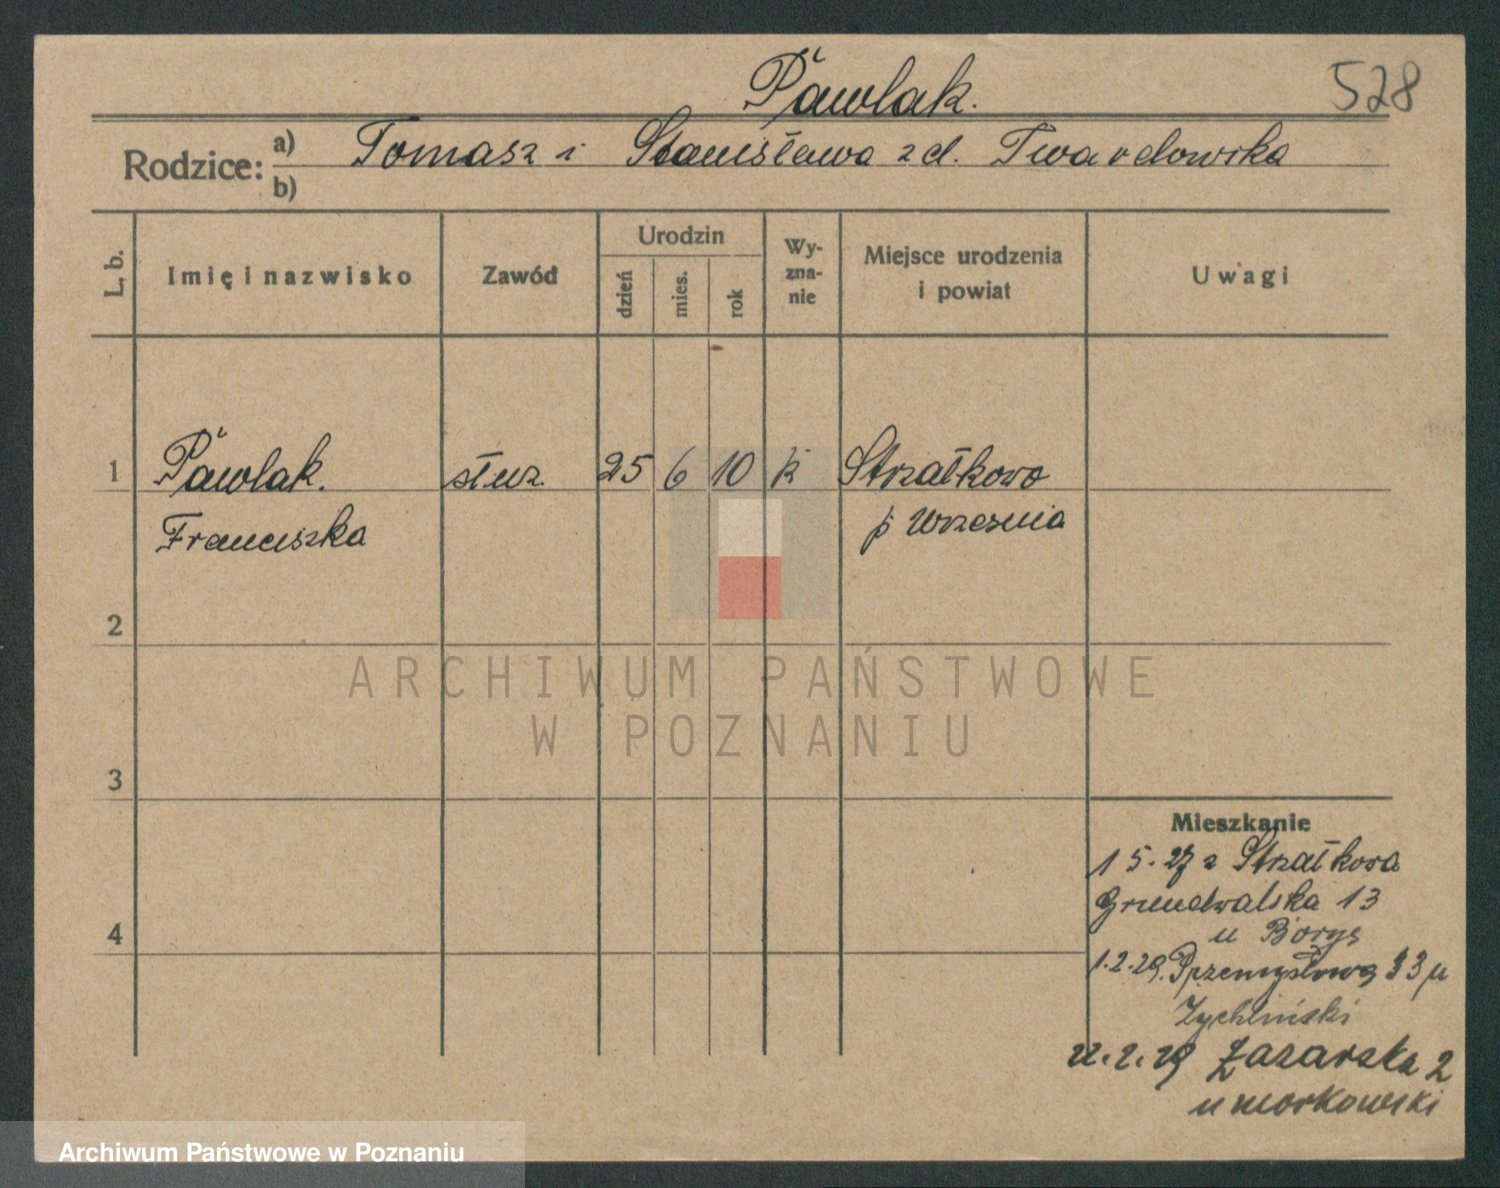 Pawlak.
528
Rodzice: a) Tomasz i Stanisława z d. Twardowska
b)
L. b.
Imię i nazwisko
Zawód
Urodzin
dzień
mies.
rok
Wy-
zna-
nie
Miejsce urodzenia
i powiat
Uwagi
1 Pawlak. służ. 25 6 10 k Strzałkowo
Franciszka p Września
2
3
4
Mieszkanie
1 5. 27 z Strzałkowa
Grundwalska 13
u Borys
1.2.29. Przemysłowa 33 u
Żychliński
22.2.29 Łazarska 2
u Morkowski
ARCHIWUM PAŃSTWOWE
W POZNANIU
Archiwum Państwowe w Poznaniu